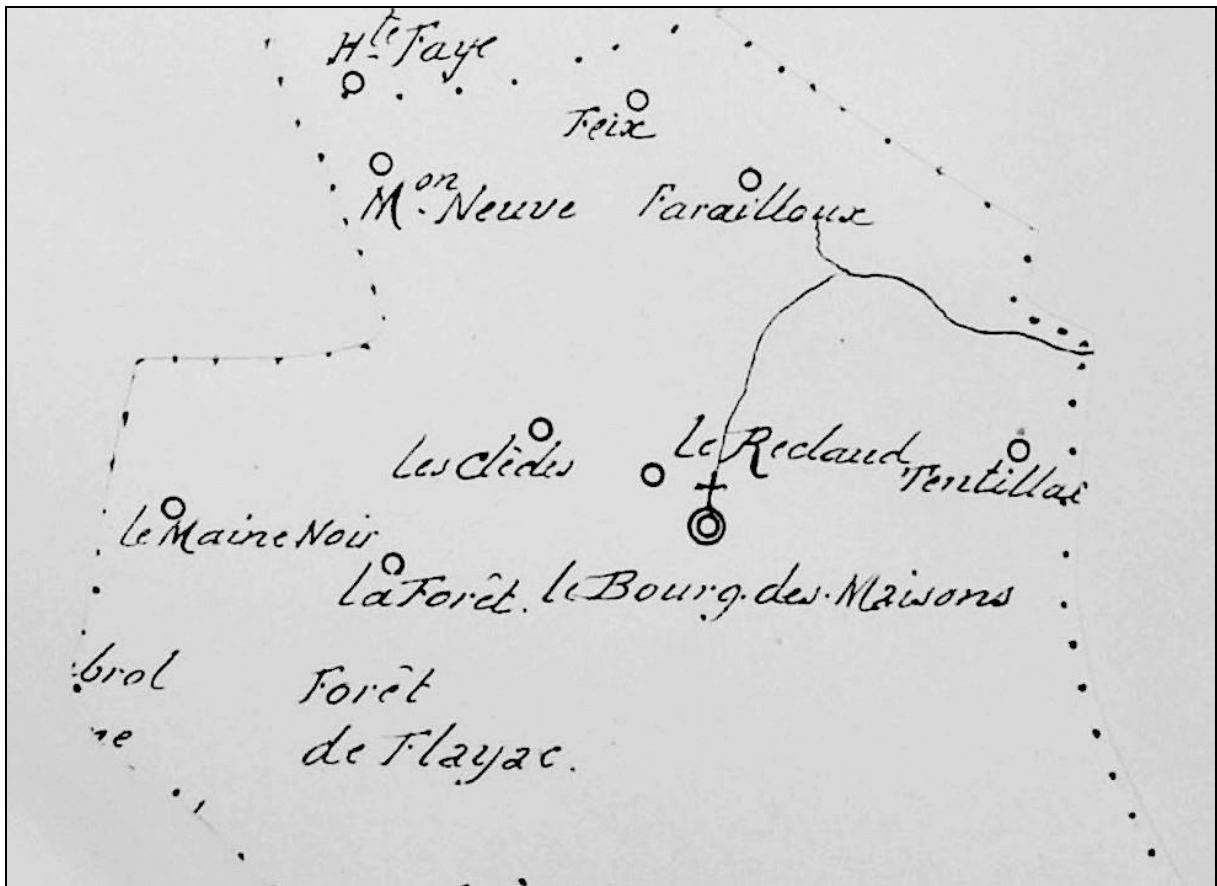 Hte Faye
Feix
Mon. Neuve
Farailloux
les Clèdes
le Reclaud
Tentillac
le Maine Noir
la Forêt.
le Bourg.des.Maisons
brol
ne
Forêt
de Flayac.